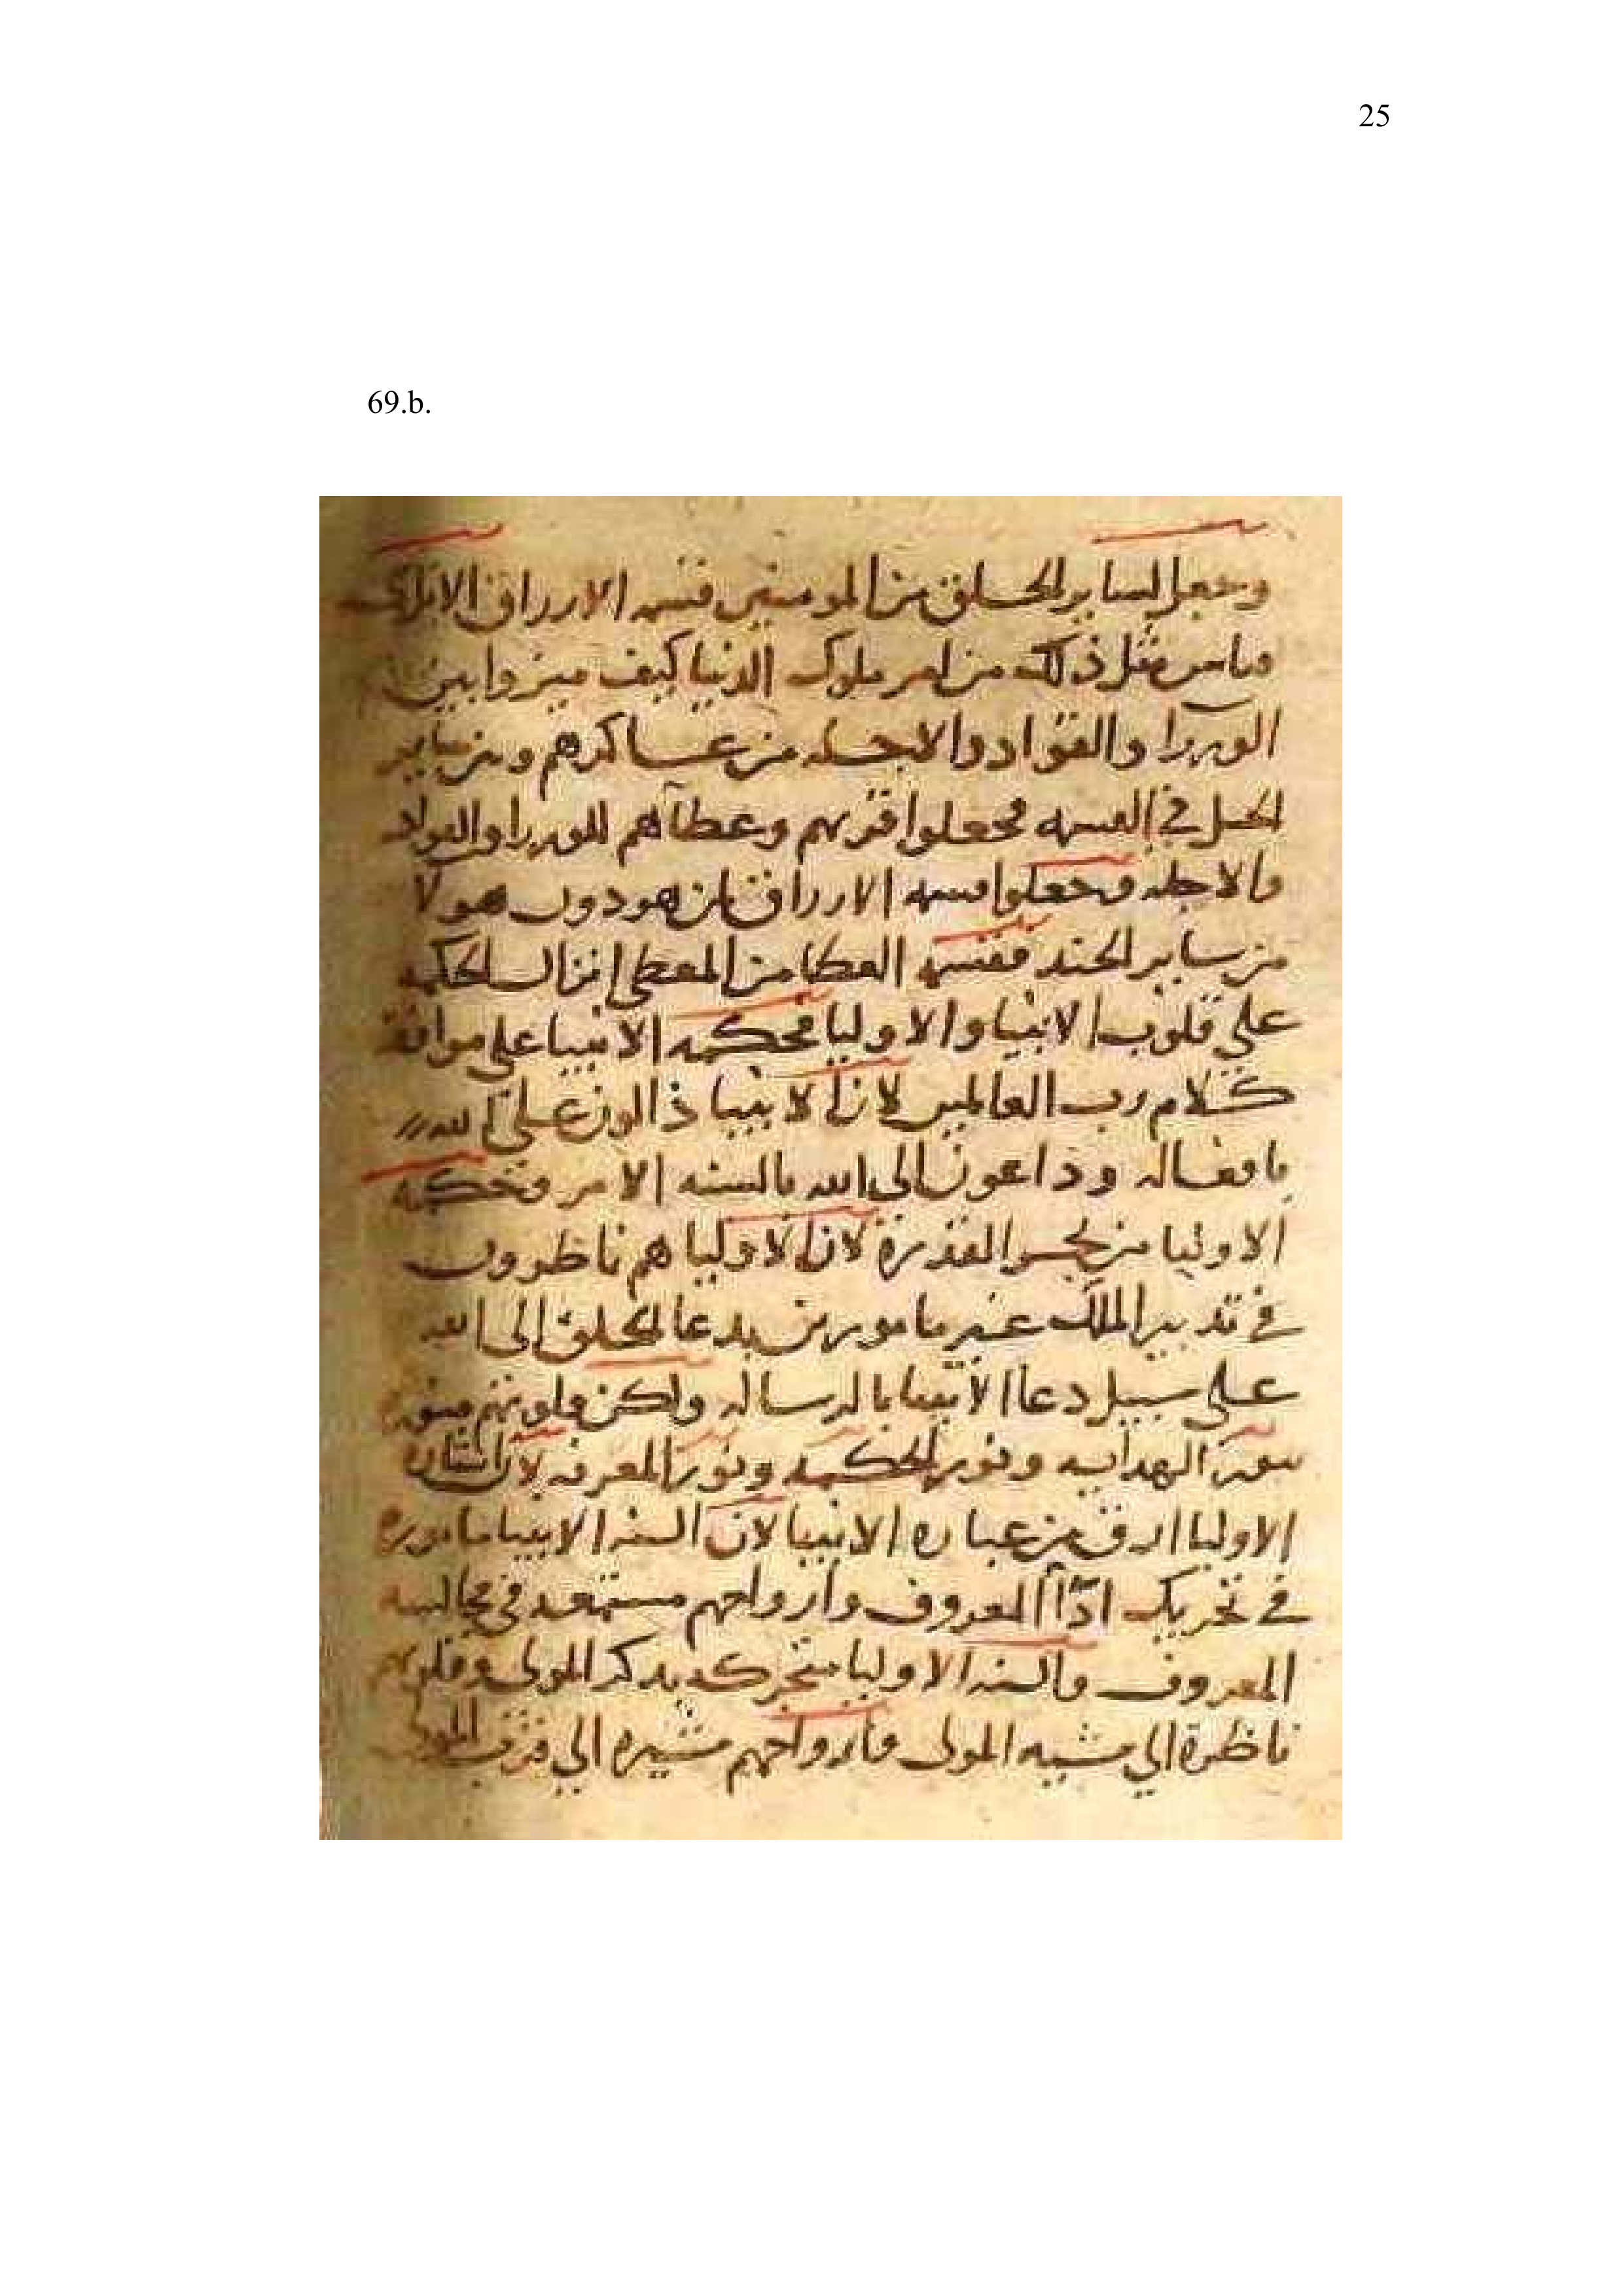 25
69.b.
وجعل لساير الخلق من المومنين قسمه الارزاق
مثل ذلك من امر ملوك الدنيا كيف ميزوا بين
الوزرا والقواد والاجله من عساكرهم ومن ساير
في القسمه فجعلوا قربهم وعطاهم للوزرا والقواد
والاجله وجعلوا قسمه الارزاق لمن هو دون هولا
من ساير الجند فقسمه العطا من المعطي انزال الحكمه
على قلوب الانبيا والاوليا فحكمه الانبيا على موافقة
كلام رب العالمين لان الانبيا دالون على الله
بافعاله وداعون الى الله بالسنه الامر وحكمه
الاوليا من القدرة لان الاوليا هم ناظرون
في تدبير الملك غير مامورين بدعا الخلق الى الله
على سبيل دعا الانبيا بالرساله ولكن قلوبهم
الهدايه ونور الحكمه ونور المعرفه لان لسان
الاوليا ارق من عباره الانبيا لان السنه الانبيا ماموره
في تحريك ادآ المعروف وارواحهم في مجالسه
المعروف والسنه الاوليا متحركه بذكر المولى وقلوبهم
ناظرة الي مشيه المولى وارواحهم مشيره الي قرب المولى